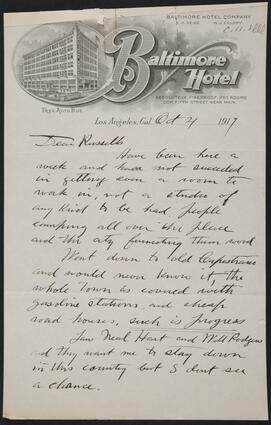 BALTIMORE HOTEL COMPANY
Baltimore
Hotel
ABSOLUTELY FIREPROOF 250 ROOMS
COR. FIFTH STREET NEAR MAIN.
FREE AUTO BUS.
Los Angeles, Cal. Oct 4 1917
Dear Russell
Have been here a
week and have not succeeded
in getting even a room to
work in, not a studio of
any kind to be had, people
camping all over the place
and the city furnishing them wood
Went down to old Capistrano
and would never know it, the
whole town is covered with
gasoline stations, and cheap
road houses, such is progress
Saw Neal Hart and Will Rodgers
and they want me to stay down
in this country but I dont see
a chance.